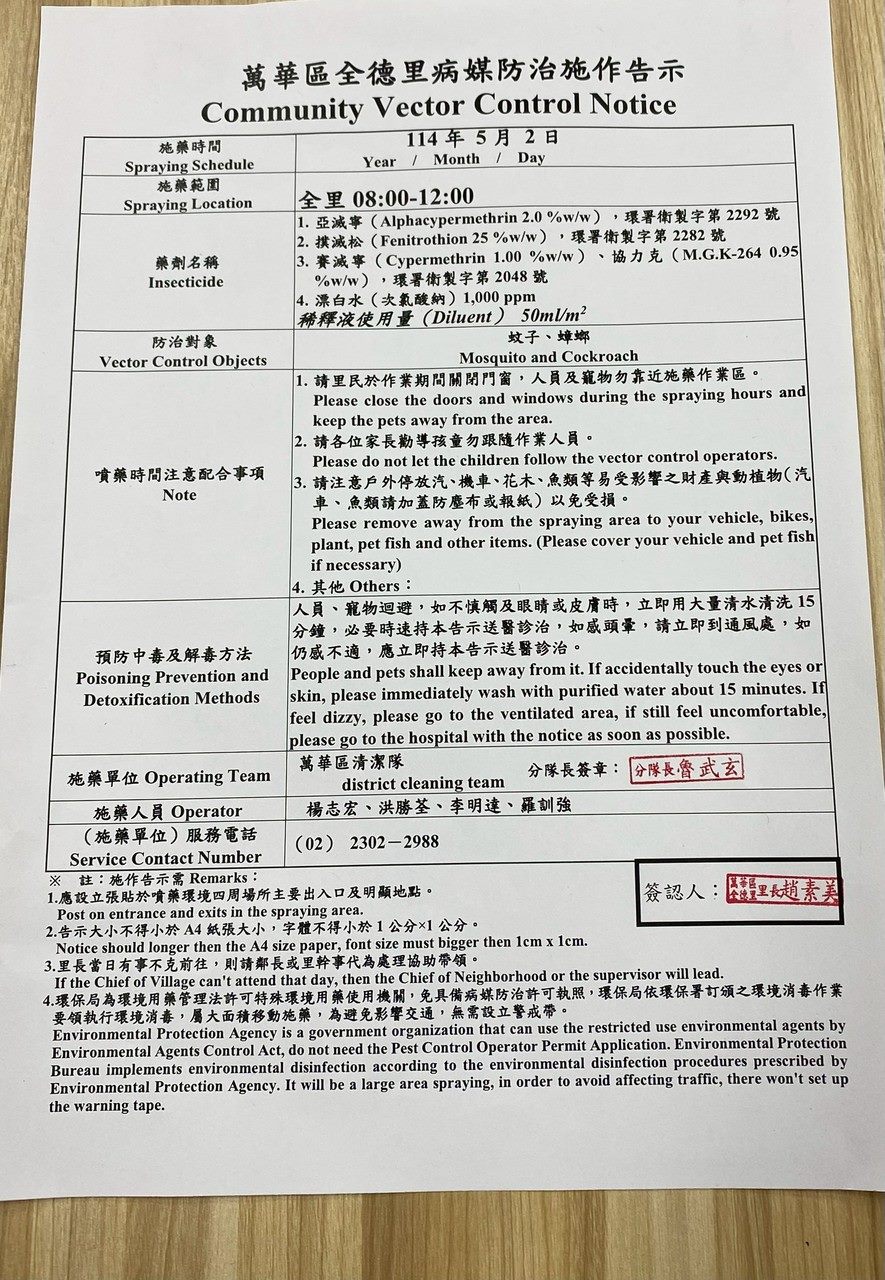 萬華區全德里病媒防治施作告示
Community Vector Control Notice
施藥時間
Spraying Schedule
114 年 5 月 2 日
Year / Month / Day
施藥範圍
Spraying Location
全里 08:00-12:00
藥劑名稱
Insecticide
1. 亞滅寧（Alphacypermethrin 2.0 %w/w），環署衛製字第 2292 號
2. 撲滅松（Fenitrothion 25 %w/w），環署衛製字第 2282 號
3. 賽滅寧（Cypermethrin 1.00 %w/w）、協力克（M.G.K-264 0.95
%w/w），環署衛製字第 2048 號
4. 漂白水（次氯酸納）1,000 ppm
稀釋液使用量（Diluent） 50ml/m²
防治對象
Vector Control Objects
蚊子、蟑螂
Mosquito and Cockroach
噴藥時間注意配合事項
Note
1. 請里民於作業期間關閉門窗，人員及寵物勿靠近施藥作業區。
Please close the doors and windows during the spraying hours and
keep the pets away from the area.
2. 請各位家長勸導孩童勿跟隨作業人員。
Please do not let the children follow the vector control operators.
3. 請注意戶外停放汽、機車、花木、魚類等易受影響之財產與動植物（汽
車、魚類請加蓋防塵布或報紙）以免受損。
Please remove away from the spraying area to your vehicle, bikes,
plant, pet fish and other items. (Please cover your vehicle and pet fish
if necessary)
4. 其他 Others：
預防中毒及解毒方法
Poisoning Prevention and
Detoxification Methods
人員、寵物迴避，如不慎觸及眼睛或皮膚時，立即用大量清水清洗 15
分鐘，必要時速持本告示送醫診治，如感頭暈，請立即到通風處，如
仍感不適，應立即持本告示送醫診治。
People and pets shall keep away from it. If accidentally touch the eyes or
skin, please immediately wash with purified water about 15 minutes. If
feel dizzy, please go to the ventilated area, if still feel uncomfortable,
please go to the hospital with the notice as soon as possible.
施藥單位 Operating Team
萬華區清潔隊
district cleaning team
分隊長簽章：
分隊長魯武玄
施藥人員 Operator
楊志宏、洪勝荃、李明達、羅訓強
（施藥單位）服務電話
Service Contact Number
（02） 2302－2988
簽認人：
萬華區
全德里
里長趙素美
※ 註：施作告示需 Remarks：
1.應設立張貼於噴藥環境四周場所主要出入口及明顯地點。
Post on entrance and exits in the spraying area.
2.告示大小不得小於 A4 紙張大小，字體不得小於 1 公分×1 公分。
Notice should longer then the A4 size paper, font size must bigger then 1cm x 1cm.
3.里長當日有事不克前往，則請鄰長或里幹事代為處理協助帶領。
If the Chief of Village can't attend that day, then the Chief of Neighborhood or the supervisor will lead.
4.環保局為環境用藥管理法許可特殊環境用藥使用機關，免具備病媒防治許可執照，環保局依環保署訂頒之環境消毒作業
要領執行環境消毒，屬大面積移動施藥，為避免影響交通，無需設立警戒帶。
Environmental Protection Agency is a government organization that can use the restricted use environmental agents by
Environmental Agents Control Act, do not need the Pest Control Operator Permit Application. Environmental Protection
Bureau implements environmental disinfection according to the environmental disinfection procedures prescribed by
Environmental Protection Agency. It will be a large area spraying, in order to avoid affecting traffic, there won't set up
the warning tape.